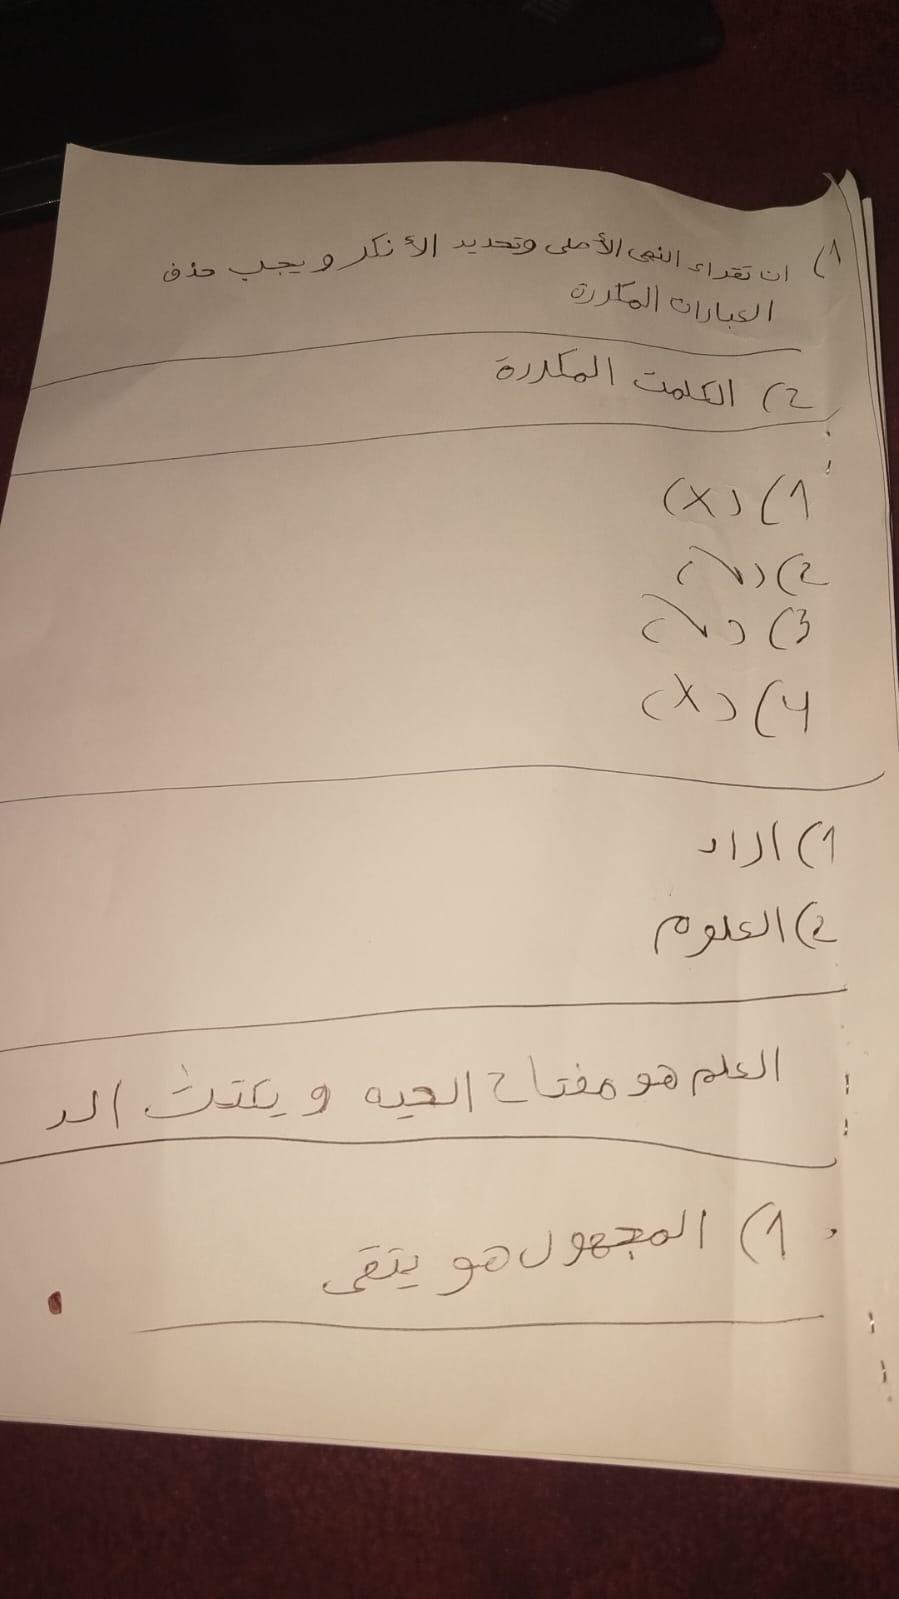 1) ان تقداء النص الأصلى وتحديد الأنكر ويجب حذف
العبارات المكررة
2) الكلمت المكررة
1) (X)
2) (✓)
3) (✓)
4) (X)
1) اراد
2) العلوم
العلم هو مفتاح الحيه و يكتث الد
1) المجهول هو يتقى